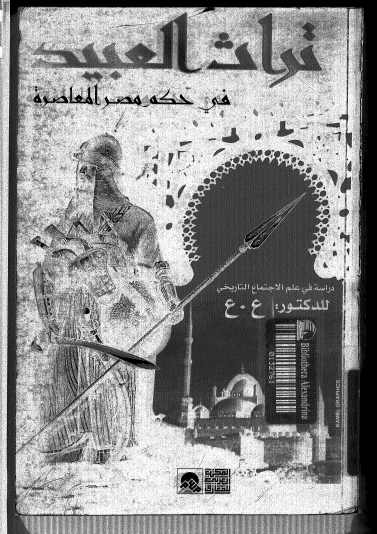 تراث العبيد
في حكم مصر المعاصرة
دراسة في علم الاجتماع التاريخي
للدكتور: ع . ع
Bibliotheca Alexandrina
0132761
KAMEL GRAPHICS